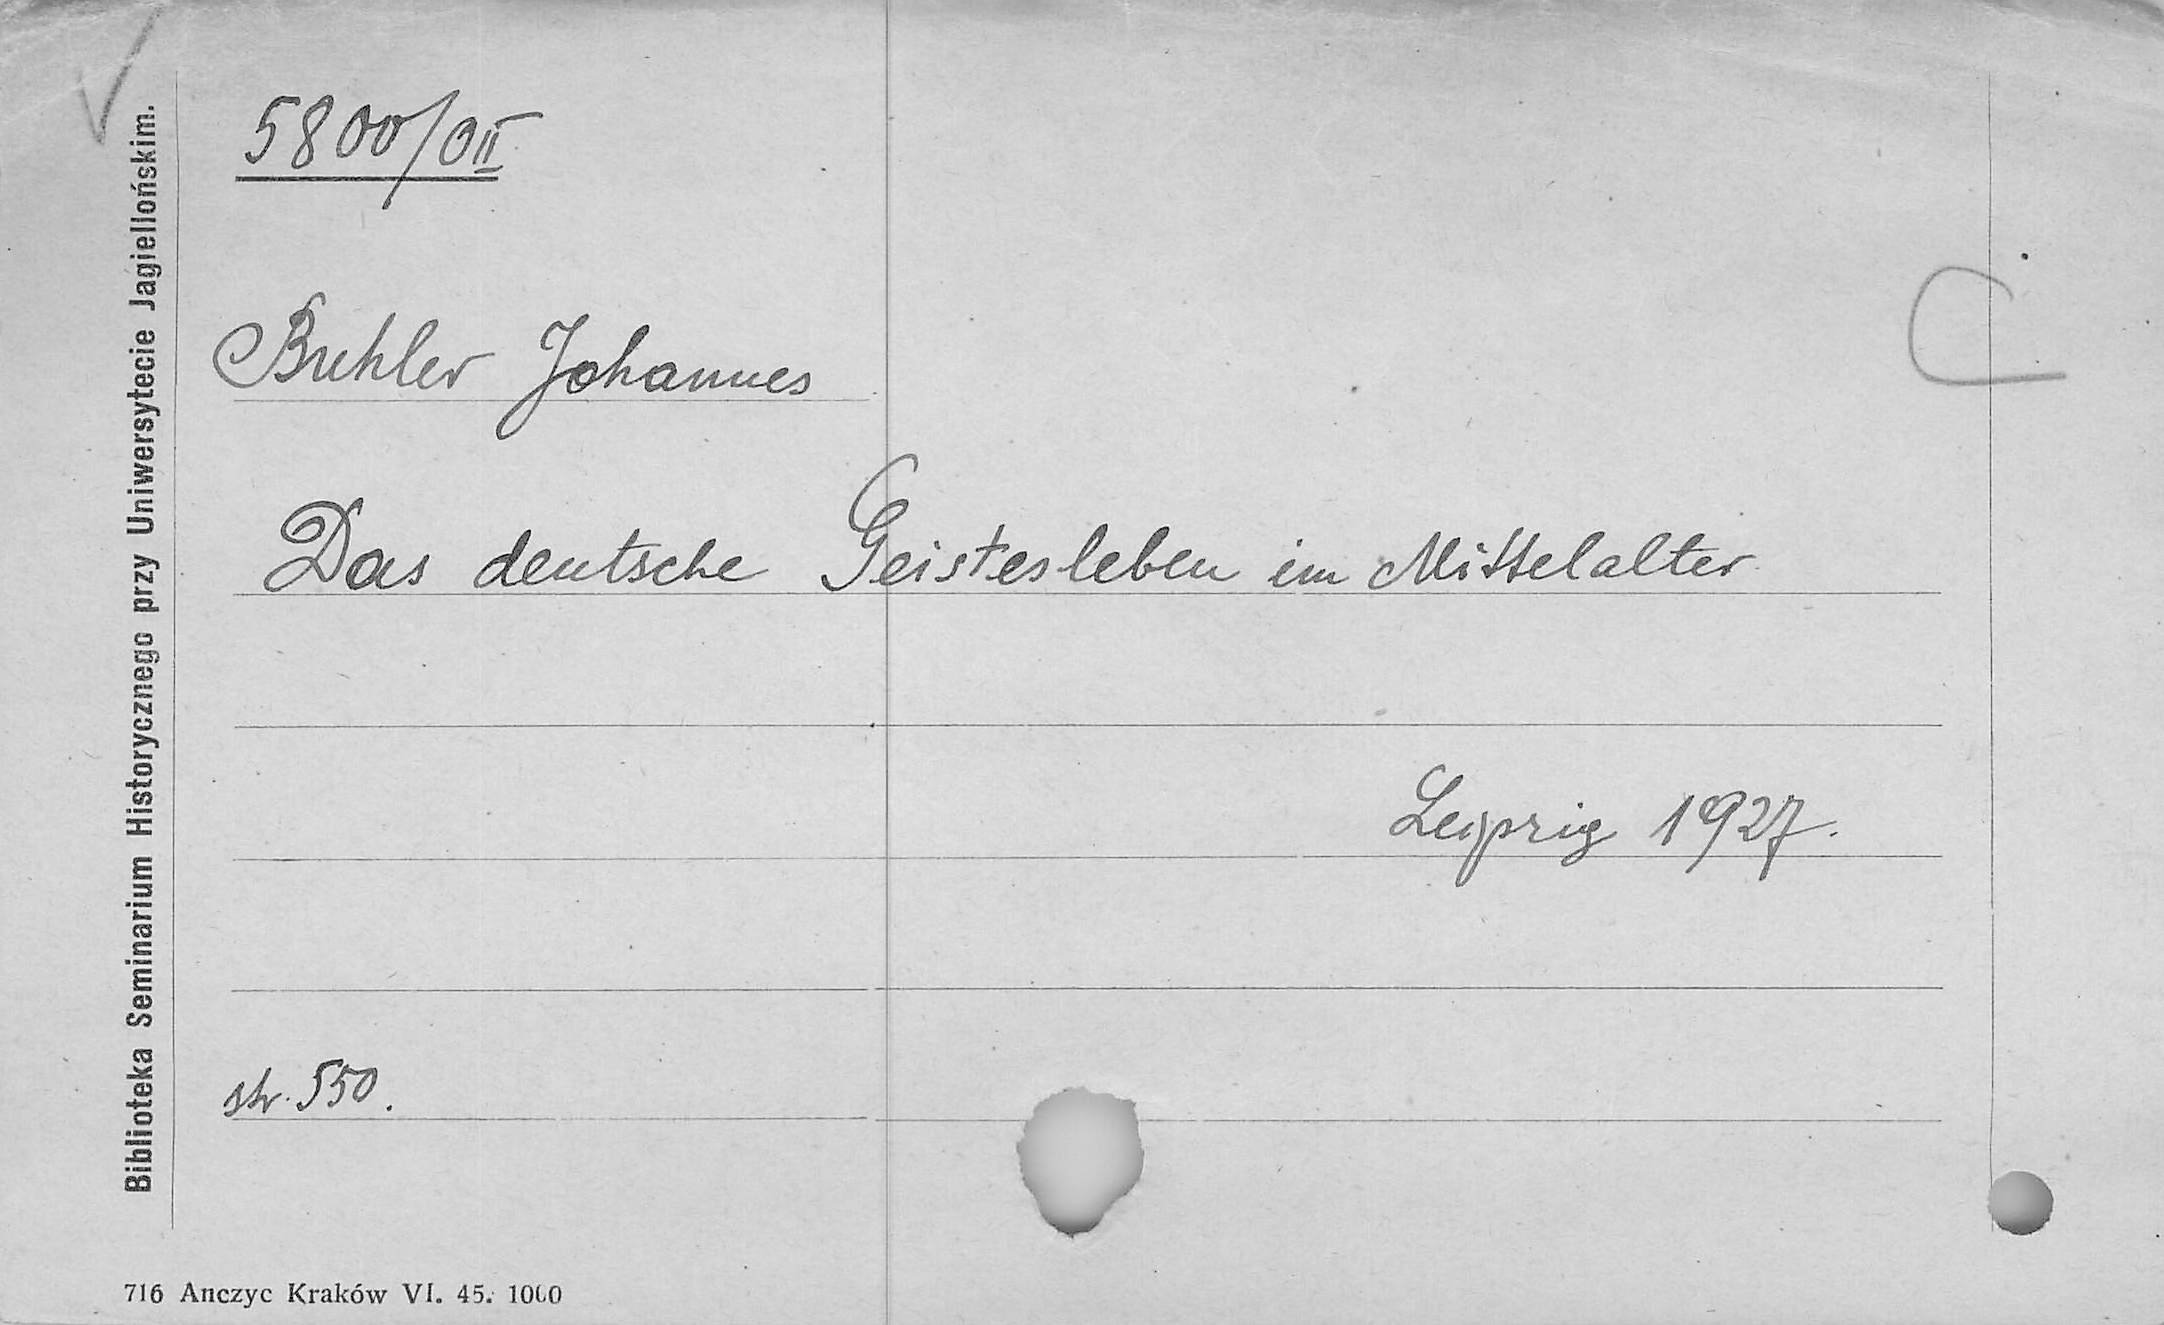 5800/OII
Buhler Johannes
Das deutsche Geistesleben im Mittelalter
Leipzig 1927.
str. 550.
Biblioteka Seminarium Historycznego przy Uniwersytecie Jagiellońskim.
716 Anczyc Kraków VI. 45. 1000